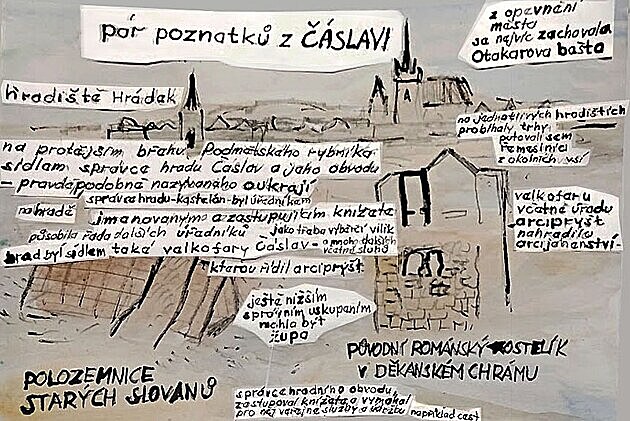 pár poznatků z ČÁSLAVI
z opevnění
města
se nejvíc zachovala
Otakarova bašta
hradiště Hrádek
na jednotlivých hradištích
probíhaly trhy
putovali sem
řemeslníci
z okolních vsí
na protějším břehu Podměstského rybníka
sídlem správce hradu Čáslav a jeho obvodu
– pravděpodobně nazývaného okrají
správce hradu-kastelán-byl úředníkem
jmenovaným a zastupujícím knížete
na hradě
působila řada dalších úředníků
jako třeba výběrčí, vilik
a mnoho dalších
včetně sluhů
hrad byl sídlem také velkofary Čáslav-
kterou řídil arcipryšt
velkofaru
včetně úřadu
arcipryšt
nahradilo
arcijáhenství-
ještě nižším
správním uskupením
mohla být
župa
PŮVODNÍ ROMÁNSKÝ KOSTELÍK
V DĚKANSKÉM CHRÁMU
POLOZEMNICE
STARÝCH SLOVANŮ
správce hradního obvodu
zastupoval knížete a vymáhal
pro něj veřejné služby a údržbu
například cest